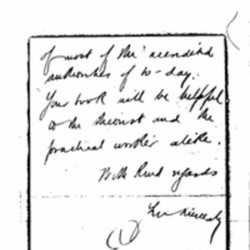 of most of the accredited
authorities of to-day.
Your book will be helpful
to the theorist and the
practical worker alike.
With kind regards
sincerely